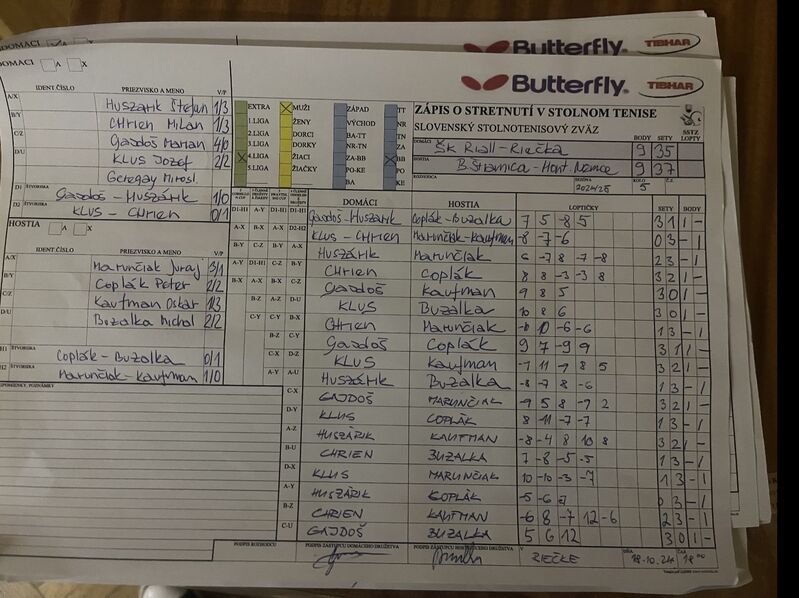 Butterfly
TIBHAR
DOMACI A X
Butterfly
TIBHAR
DOMACI A X
IDENT.ČÍSLO PRIEZVISKO A MENO V/P
A/X Huszárik Štefan 1/3
B/Y CHrien Milan 1/3
C/Z Gajdoš Marian 4/0
D/U KLUS Jozef 2/2
Geregay Mirosl.
D1 ŠTVORHRA Gajdoš - Huszárik 1/0
D2 KLUS - CHrien 0/1
HOSTIA A X
IDENT.ČÍSLO PRIEZVISKO A MENO V/P
A/X Marunčiak Juraj 3/1
B/Y Coplák Peter 2/2
C/Z Kaufman Oskar 1/3
D/U Buzalka Michal 2/2
H1 ŠTVORHRA Coplák - Buzalka 0/1
H2 ŠTVORHRA Marunčiak - Kaufman 1/0
EXTRA MUŽI ZÁPAD TT
1.LIGA ŽENY VÝCHOD NR
2.LIGA DORCI BA-TT TN
3.LIGA DORKY NR-TN ZA
4.LIGA ŽIACI ZA-BB BB
5.LIGA ŽIAČKY PO-KE PO
BA KE
ZÁPIS O STRETNUTÍ V STOLNOM TENISE
SLOVENSKÝ STOLNOTENISOVÝ ZVÄZ
BODY SETY SSTZ LOPTY
DOMÁCI ŠK Riall - Riečka 9 35
HOSTIA B.Štiavnica - Hont. Nemce 9 37
ROZHODCA SEZÓNA 2024/25 KOLO 5 Č.Z.
DOMÁCI HOSTIA LOPTIČKY SETY BODY
D1-H1 A-Y D1-H1 D1-H1 Gajdoš-Huszárik Coplák-Buzalka 7 5 -8 5 3 1 1 -
A-X B-X A-X D2-H2 KLUS - CHrien Marunčiak-Kaufman -8 -7 -6 0 3 - 1
B-Y C-Z B-Y A-X Huszárik Marunčiak 6 -7 8 -7 -8 2 3 - 1
A-Y D1-H1 C-Z B-Y CHrien Coplák 8 8 -3 -3 8 3 2 1 -
B-X A-X B-X C-Z Gajdoš Kaufman 9 8 5 3 0 1 -
B-Z A-Z D-U KLUS Buzalka 10 8 6 3 0 1 -
C-Y C-Y B-X CHrien Marunčiak 10 -6 -6 1 3 - 1
B-Z C-Y Gajdoš Coplák 9 7 -9 9 3 1 1 -
C-X D-Z KLUS Kaufman -7 11 -9 8 5 3 2 1 -
A-Y A-U Huszárik Buzalka -8 -7 8 -6 1 3 - 1
C-X GAJDOŠ MARUNČIAK -9 5 8 -7 2 3 2 1 -
D-Y KLUS COPLÁK 8 -11 -7 -7 1 3 - 1
A-Z HUSZÁRIK KAUFMAN -8 -4 8 10 8 3 2 1 -
B-U CHRIEN BUZALKA 7 -8 -5 -5 1 3 - 1
D-X KLUS MARUNČIAK 10 -10 -3 -7 1 3 - 1
A-Y HUSZÁRIK COPLÁK -5 -6 0 3 - 1
B-Z CHRIEN KAUFMAN -6 8 -7 12 -6 2 3 - 1
C-U GAJDOŠ BUZALKA 5 6 12 3 0 1 -
PODPIS ROZHODCU PODPIS ZÁSTUPCU DOMÁCEHO DRUŽSTVA PODPIS ZÁSTUPCU HOSŤUJÚCEHO DRUŽSTVA V RIEČKE DŇA 18.10.24 ČAS 18 00